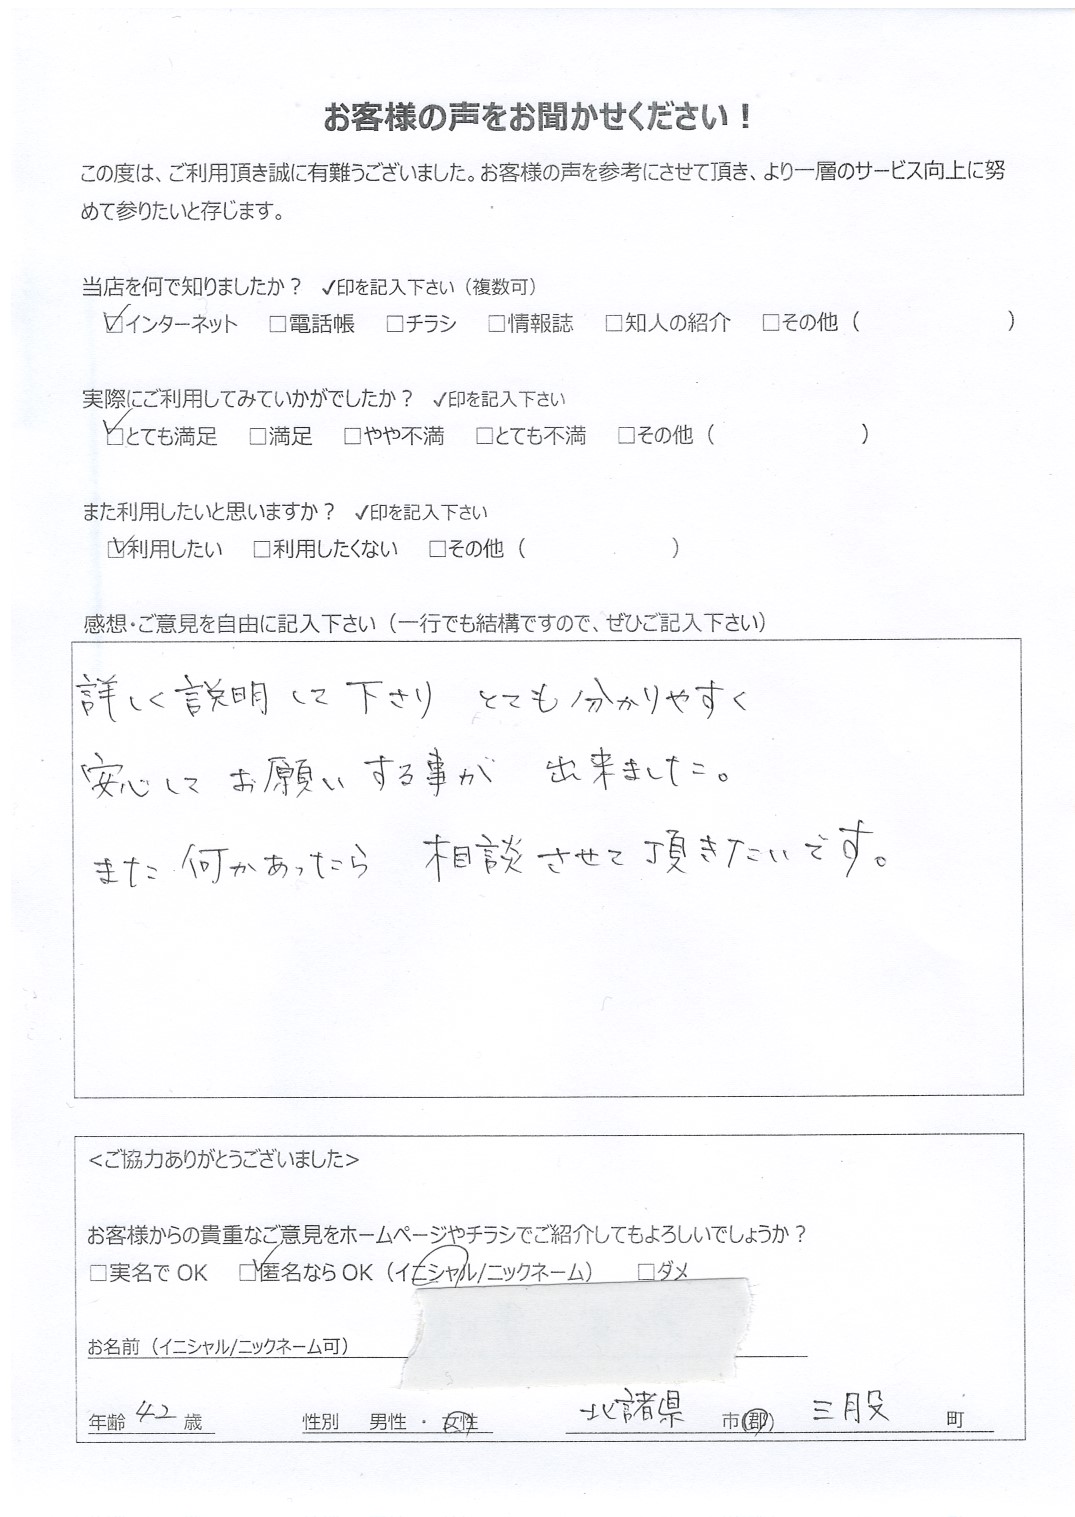 お客様の声をお聞かせください！
この度は、ご利用頂き誠に有難うございました。お客様の声を参考にさせて頂き、より一層のサービス向上に努
めて参りたいと存じます。
当店を何で知りましたか？ ✓印を記入下さい（複数可）
☑インターネット □電話帳 □チラシ □情報誌 □知人の紹介 □その他（ ）
実際にご利用してみていかがでしたか？ ✓印を記入下さい
☑とても満足 □満足 □やや不満 □とても不満 □その他（ ）
また利用したいと思いますか？ ✓印を記入下さい
☑利用したい □利用したくない □その他（ ）
感想・ご意見を自由に記入下さい（一行でも結構ですので、ぜひご記入下さい）
詳しく説明して下さり とても分かりやすく
安心して お願いする事が 出来ました。
また何かあったら 相談させて頂きたいです。
<ご協力ありがとうございました>
お客様からの貴重なご意見をホームページやチラシでご紹介してもよろしいでしょうか？
□実名でOK ☑匿名ならOK（イニシャル/ニックネーム） □ダメ
お名前（イニシャル/ニックネーム可）
年齢 42 歳 性別 男性 ・ 女性 北諸県 市(郡) 三股 町